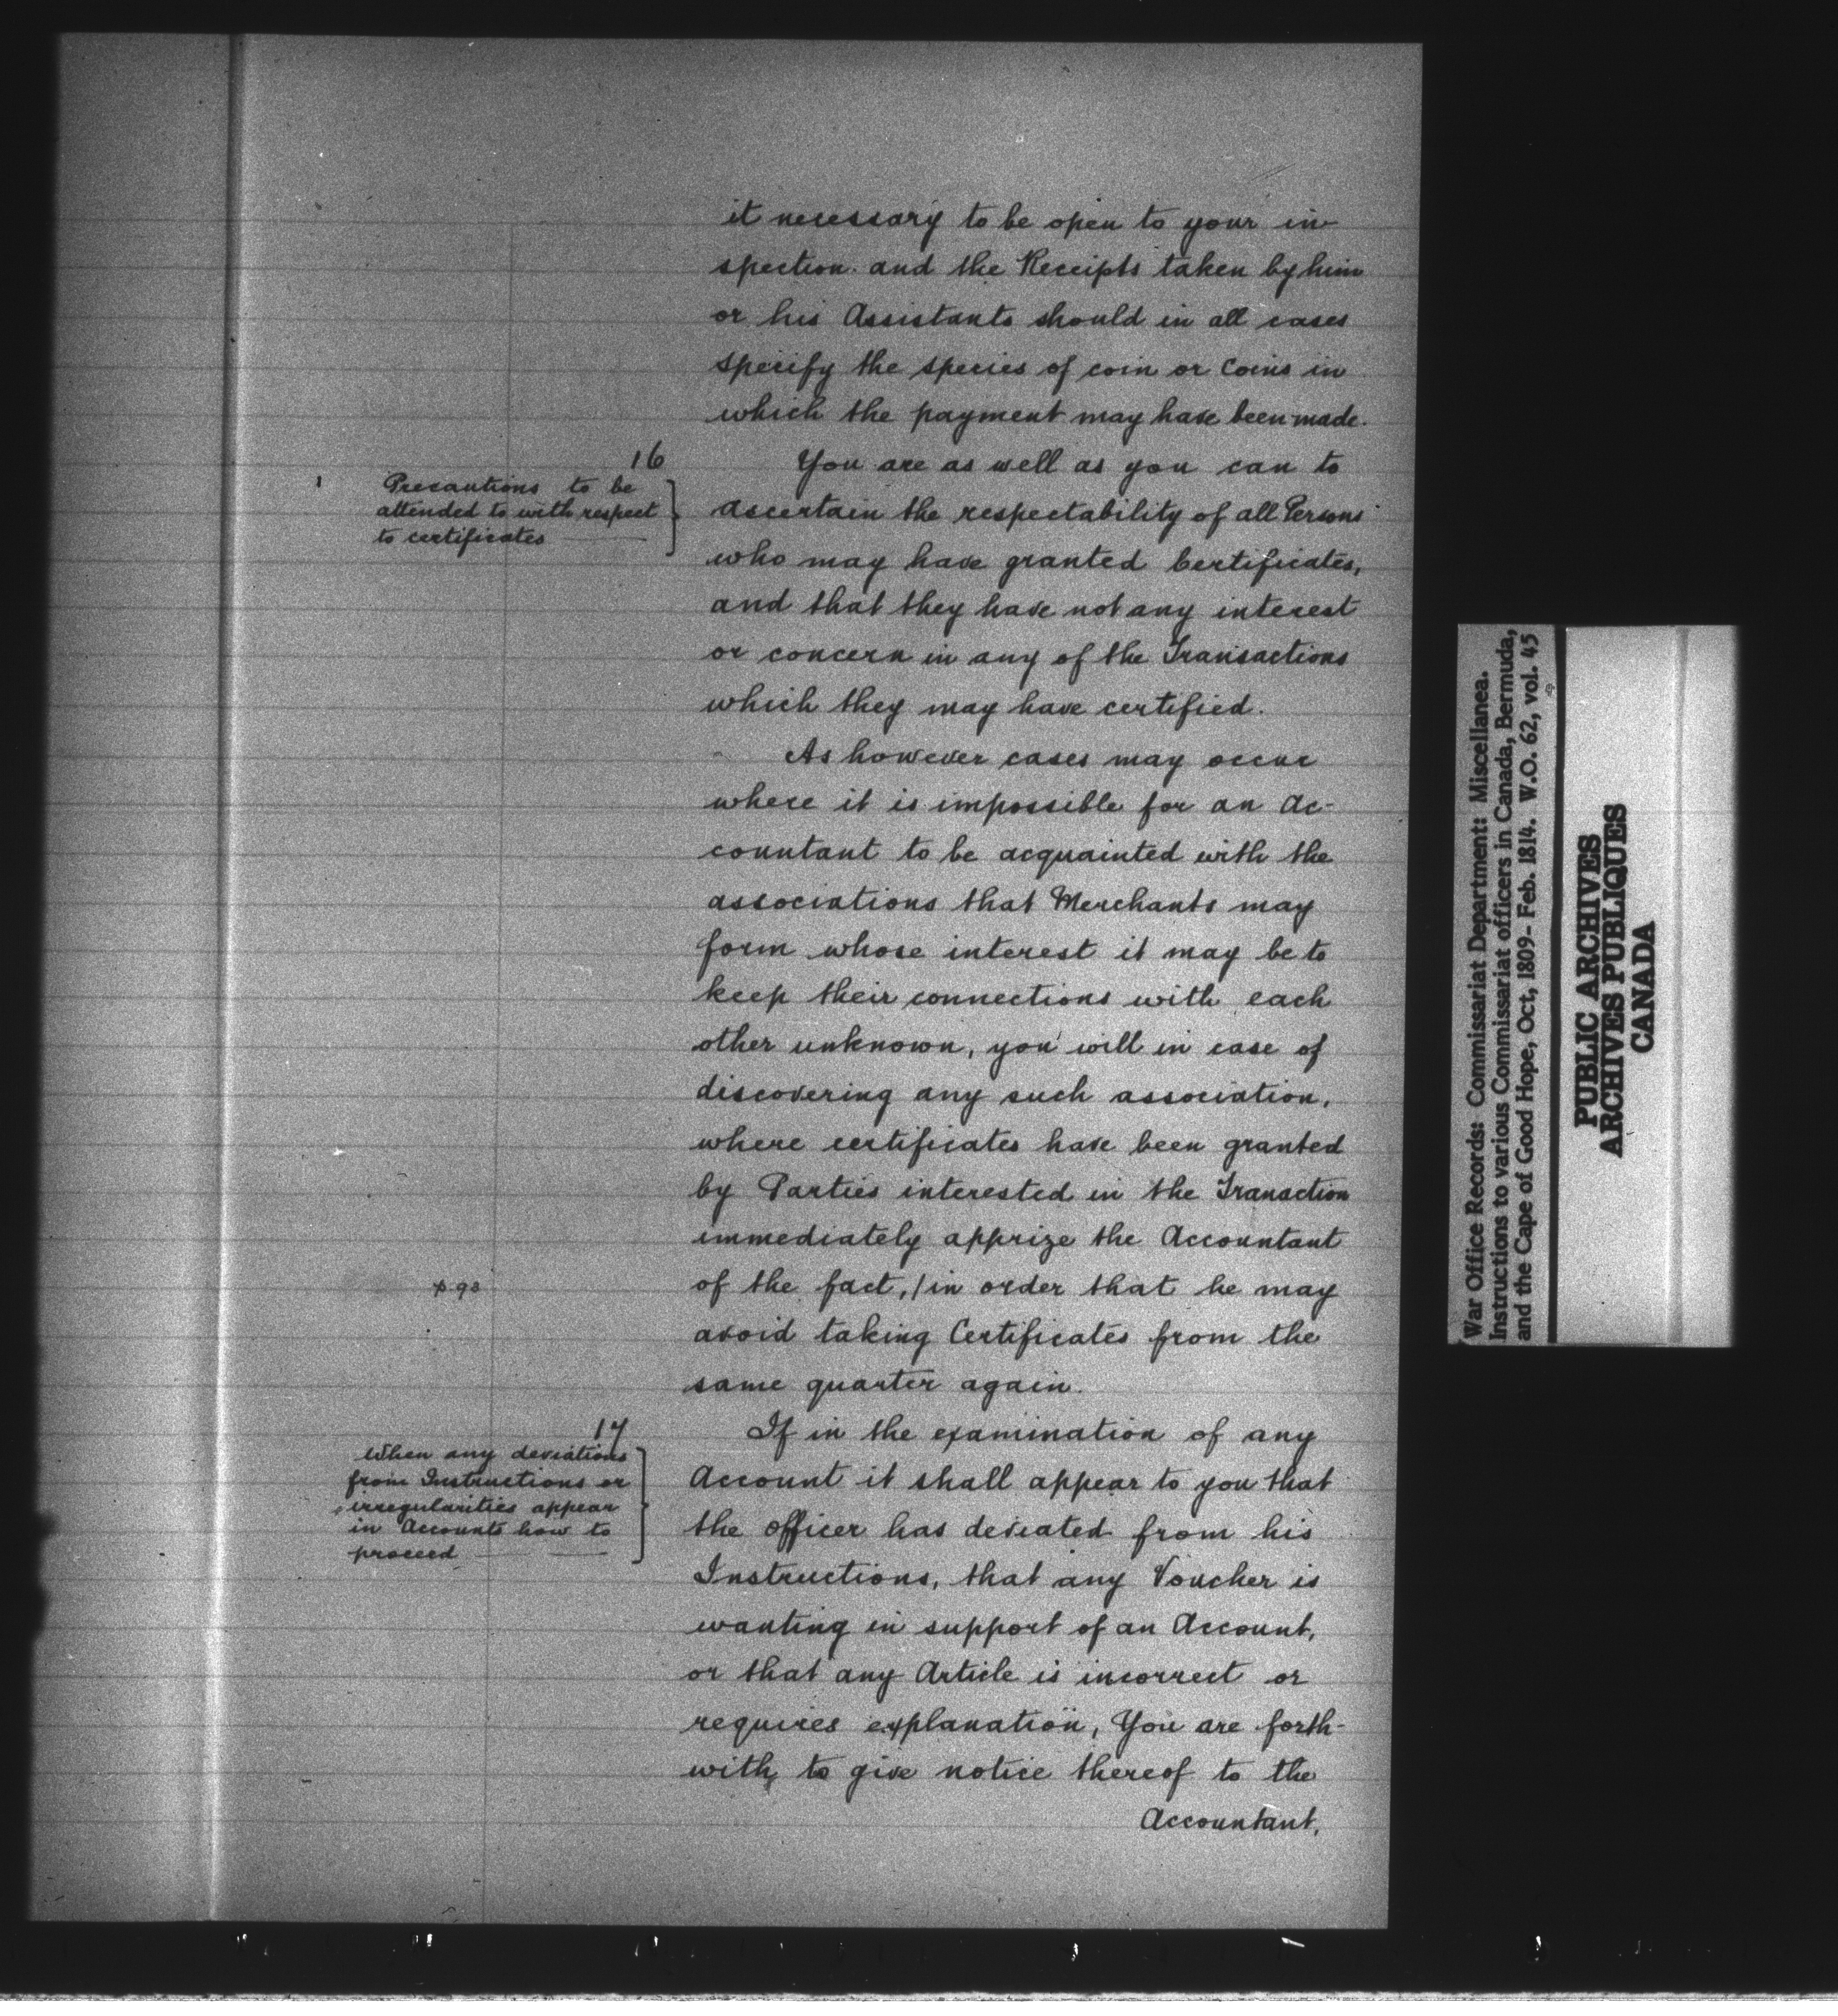 it necessary to be open to your in-
spection and the Receipts taken by him
or his Assistants should in all cases
specify the species of coin or Coins in
which the payment may have been made.
16
Precautions to be
attended to with respect
to certificates
You are as well as you can to
ascertain the respectability of all Persons
who may have granted Certificates,
and that they have not any interest
or concern in any of the Transactions
which they may have certified.
As however cases may occur
where it is impossible for an Ac-
countant to be acquainted with the
associations that Merchants may
form whose interest it may be to
keep their connections with each
other unknown, you will in case of
discovering any such association,
where certificates have been granted
by Parties interested in the Transction
immediately apprize the Accountant
p. 93
of the fact, / in order that he may
avoid taking Certificates from the
same quarter again.
17
When any deviations
from Instructions or
irregularities appear
in Accounts how to
proceed
If in the examination of any
Account it shall appear to you that
the officer has deviated from his
Instructions, that any Voucher is
wanting in support of an Account,
or that any Article is incorrect or
requires explanation, You are forth-
with, to give notice thereof to the
Accountant,
War Office Records: Commissariat Department: Miscellanea.
Instructions to various Commissariat officers in Canada, Bermuda,
and the Cape of Good Hope, Oct, 1809- Feb. 1814. W.O. 62, vol. 45
PUBLIC ARCHIVES
ARCHIVES PUBLIQUES
CANADA